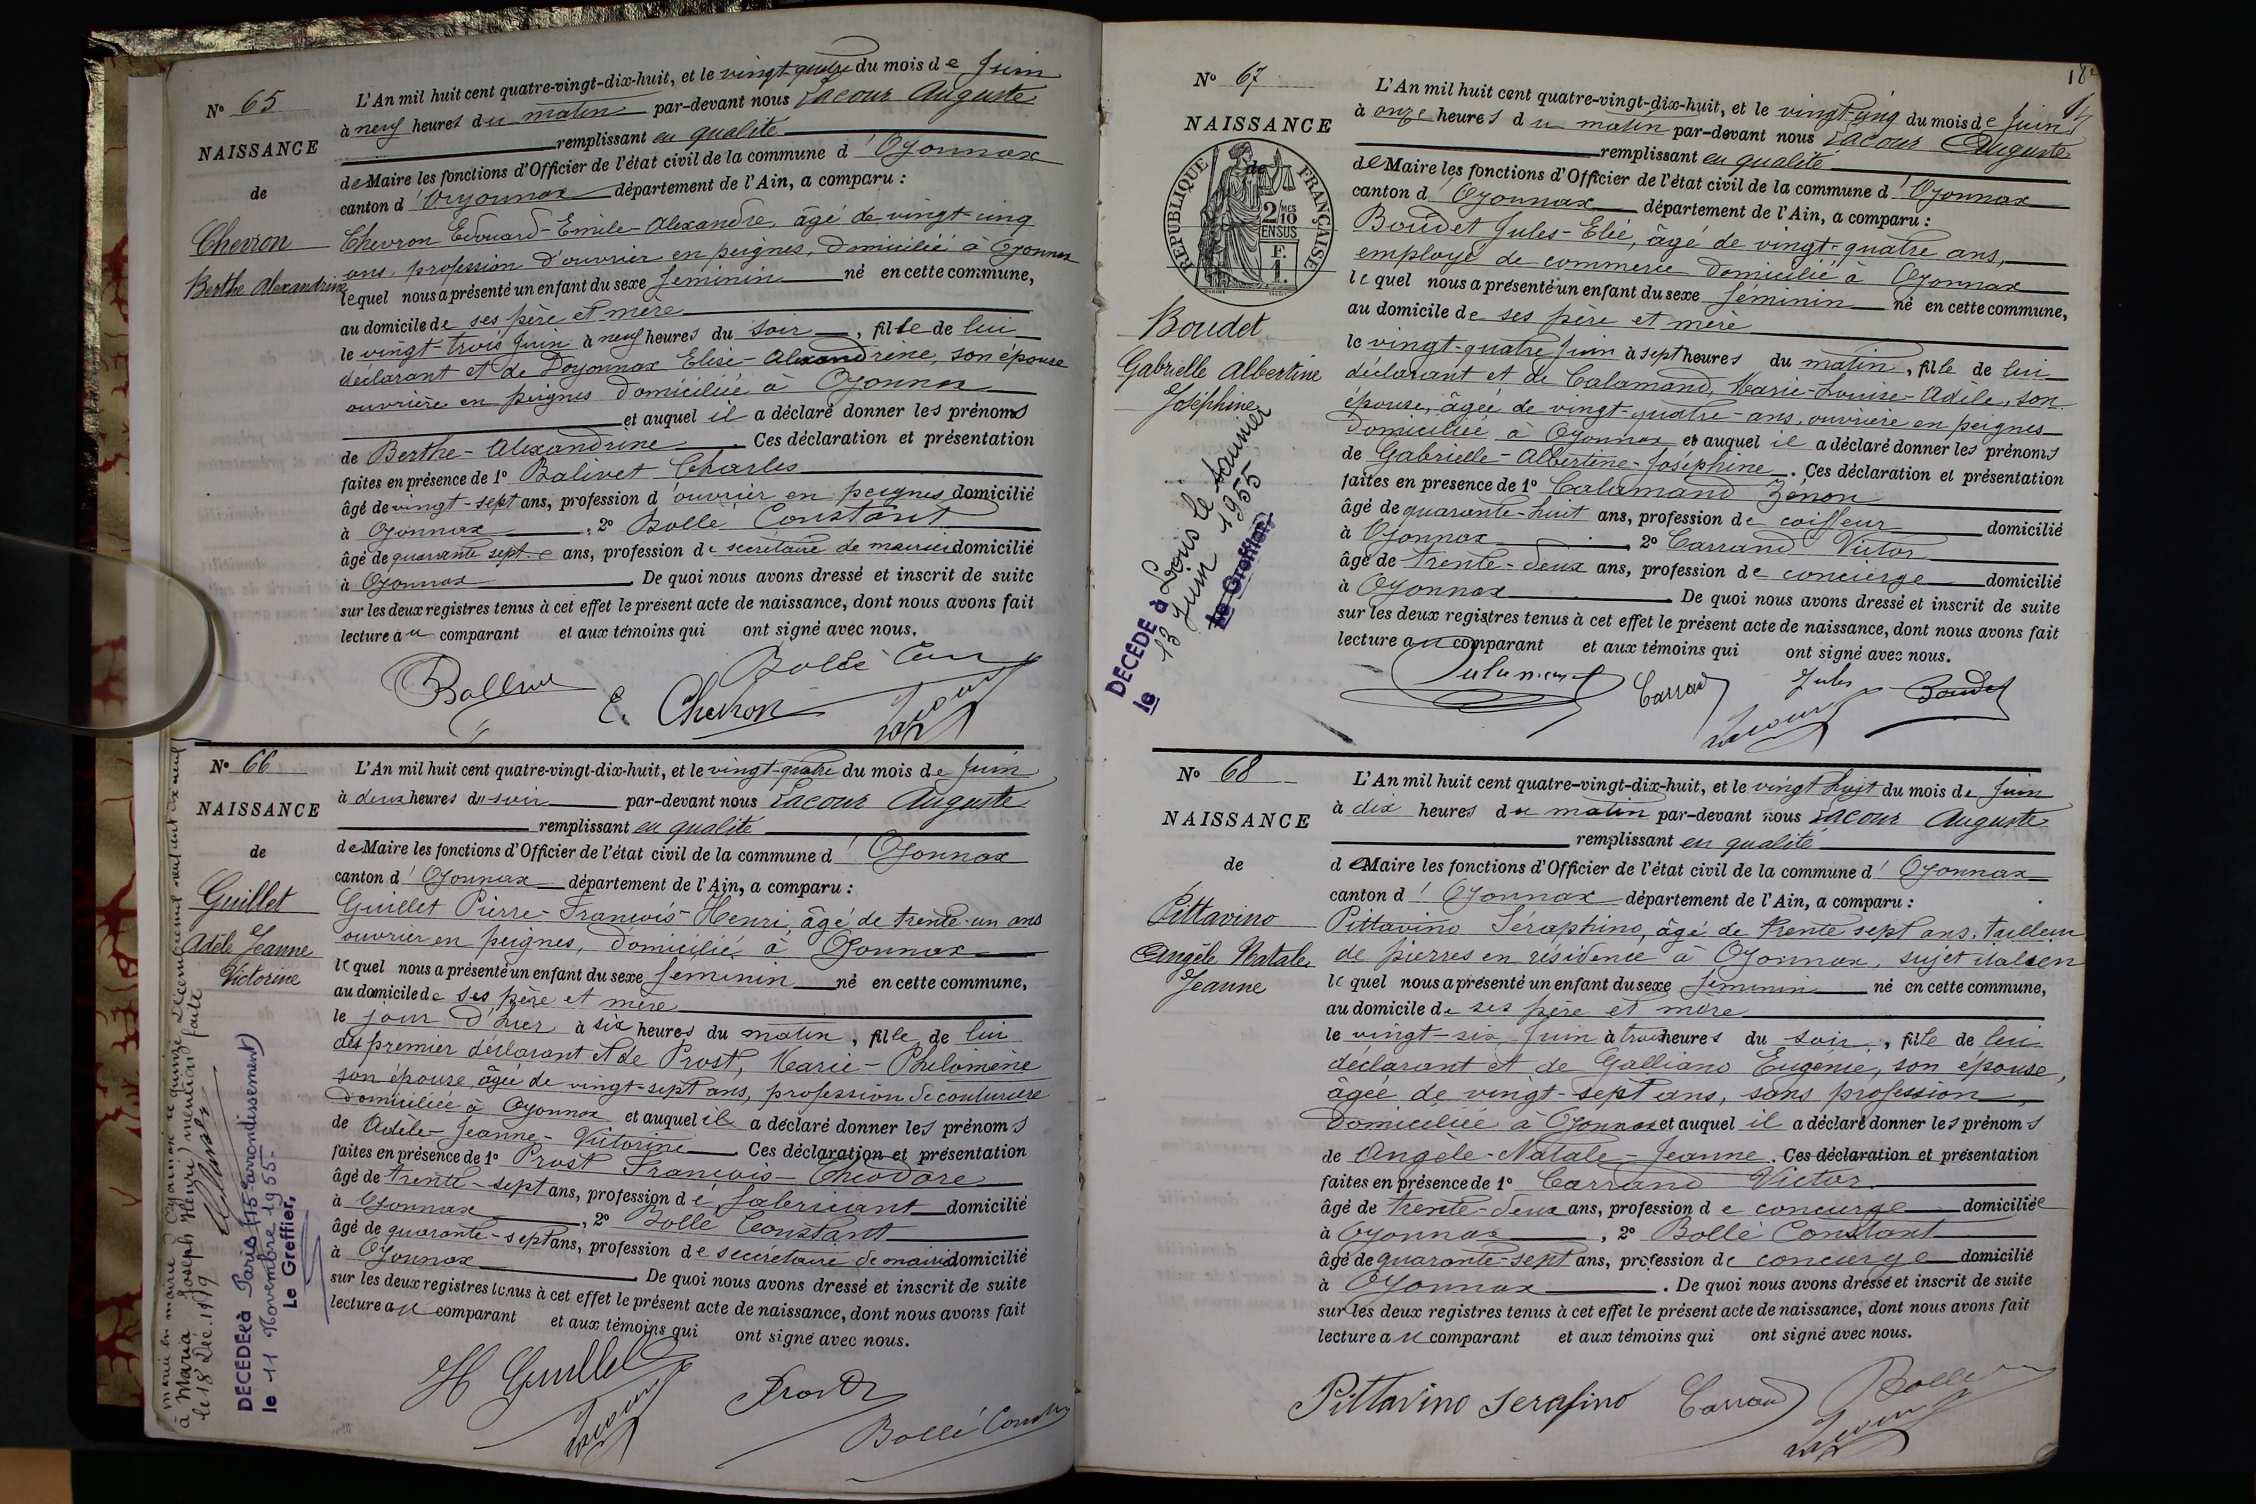 N° 65
NAISSANCE
de
Chevron
Berthe Alexandrine
L'An mil huit cent quatre-vingt-dix-huit, et le vingt-quatre du mois de Juin
à neuf heures du matin par-devant nous Lacour Auguste
remplissant en qualité
de Maire les fonctions d'Officier de l'état civil de la commune d'Oyonnax
canton d'Oyonnax département de l'Ain, a comparu :
Chevron Edouard-Emile-Alexandre, âgé de vingt-cinq
ans, profession d'ouvrier en peignes, domicilié à Oyonnax
lequel nous a présenté un enfant du sexe féminin né en cette commune,
au domicile de ses père et mère
le vingt-trois Juin à neuf heures du soir, fille de lui
déclarant et de Doyonnax Elise-Alexandrine, son épouse
ouvrière en peignes domiciliée à Oyonnax
et auquel il a déclaré donner les prénoms
de Berthe-Alexandrine. Ces déclaration et présentation
faites en présence de 1° Balivet Charles
âgé de vingt-sept ans, profession d'ouvrier en peignes domicilié
à Oyonnax, 2° Bollé Constant
âgé de quarante sept ans, profession de secrétaire de mairie domicilié
à Oyonnax. De quoi nous avons dressé et inscrit de suite
sur les deux registres tenus à cet effet le présent acte de naissance, dont nous avons fait
lecture au comparant et aux témoins qui ont signé avec nous.
Bollé Cons
E. Chevron
Lacour
N° 66
NAISSANCE
de
Guillet
Adèle Jeanne
Victorine
marié en mairie d'Oyonnax le quinze Décembre mil neuf cent dix neuf
à Maria Joseph (Henri) mention faite
le 18 Déc. 1919
DÉCÉDÉE à Paris (15e arrondissement)
le 11 Novembre 1955
Le Greffier,
L'An mil huit cent quatre-vingt-dix-huit, et le vingt-quatre du mois de Juin
à deux heures du soir par-devant nous Lacour Auguste
remplissant en qualité
de Maire les fonctions d'Officier de l'état civil de la commune d'Oyonnax
canton d'Oyonnax département de l'Ain, a comparu :
Guillet Pierre-François-Henri, âgé de trente-un ans
ouvrier en peignes, domicilié à Oyonnax
lequel nous a présenté un enfant du sexe féminin né en cette commune,
au domicile de ses père et mère
le jour d'hier à six heures du matin, fille de lui
dit premier déclarant et de Prost, Marie-Philomène
son épouse âgée de vingt-sept ans, profession de couturière
domiciliée à Oyonnax et auquel il a déclaré donner les prénoms
de Adèle-Jeanne-Victorine. Ces déclaration et présentation
faites en présence de 1° Prost François-Théodore
âgé de trente-sept ans, profession de fabricant domicilié
à Oyonnax, 2° Bollé Constant
âgé de quarante-sept ans, profession de secrétaire de mairie domicilié
à Oyonnax. De quoi nous avons dressé et inscrit de suite
sur les deux registres tenus à cet effet le présent acte de naissance, dont nous avons fait
lecture au comparant et aux témoins qui ont signé avec nous.
H Guillet
Prost
Lacour
Bollé Const
18
N° 67
NAISSANCE
de
RÉPUBLIQUE FRANÇAISE
2/10 MES
EN SUS
F.
1.
Boudet
Gabrielle Albertine
Joséphine
DÉCÉDÉ à Lons le Saunier
le 13 Juin 1955
Le Greffier,
L'An mil huit cent quatre-vingt-dix-huit, et le vingt-cinq du mois de Juin
à onze heures du matin par-devant nous Lacour Auguste
remplissant en qualité
de Maire les fonctions d'Officier de l'état civil de la commune d'Oyonnax
canton d'Oyonnax département de l'Ain, a comparu :
Boudet Jules-Elie, âgé de vingt-quatre ans,
employé de commerce domicilié à Oyonnax
lequel nous a présenté un enfant du sexe féminin né en cette commune,
au domicile de ses père et mère
le vingt-quatre Juin à sept heures du matin, fille de lui
déclarant et de Calamand, Marie-Louise-Adèle, son
épouse, âgée de vingt-quatre-ans, ouvrière en peignes
domiciliée à Oyonnax et auquel il a déclaré donner les prénoms
de Gabrielle-Albertine-Joséphine. Ces déclaration et présentation
faites en présence de 1° Calamand Zénon
âgé de quarante-huit ans, profession de coiffeur domicilié
à Oyonnax, 2° Carrand Victor
âgé de trente-deux ans, profession de concierge domicilié
à Oyonnax. De quoi nous avons dressé et inscrit de suite
sur les deux registres tenus à cet effet le présent acte de naissance, dont nous avons fait
lecture au comparant et aux témoins qui ont signé avec nous.
Carrand
Jules Boudet
Lacour
N° 68
NAISSANCE
de
Pittavino
Angèle Natale
Jeanne
L'An mil huit cent quatre-vingt-dix-huit, et le vingt huit du mois de Juin
à dix heures du matin par-devant nous Lacour Auguste
remplissant en qualité
de Maire les fonctions d'Officier de l'état civil de la commune d'Oyonnax
canton d'Oyonnax département de l'Ain, a comparu :
Pittavino Séraphino, âgé de trente sept ans, tailleur
de pierres en résidence à Oyonnax, sujet italien
lequel nous a présenté un enfant du sexe féminin né en cette commune,
au domicile de ses père et mère
le vingt-six Juin à trois heures du soir, fille de lui
déclarant et de Galliano Eugénie, son épouse,
âgée de vingt-sept ans, sans profession,
domiciliée à Oyonnax et auquel il a déclaré donner les prénoms
de Angèle-Natale-Jeanne. Ces déclaration et présentation
faites en présence de 1° Carrand Victor
âgé de trente-deux ans, profession de concierge domicilié
à Oyonnax, 2° Bollé Constant
âgé de quarante-sept ans, profession de concierge domicilié
à Oyonnax. De quoi nous avons dressé et inscrit de suite
sur les deux registres tenus à cet effet le présent acte de naissance, dont nous avons fait
lecture au comparant et aux témoins qui ont signé avec nous.
Pittavino Serafino
Carrand
Bollé
Lacour